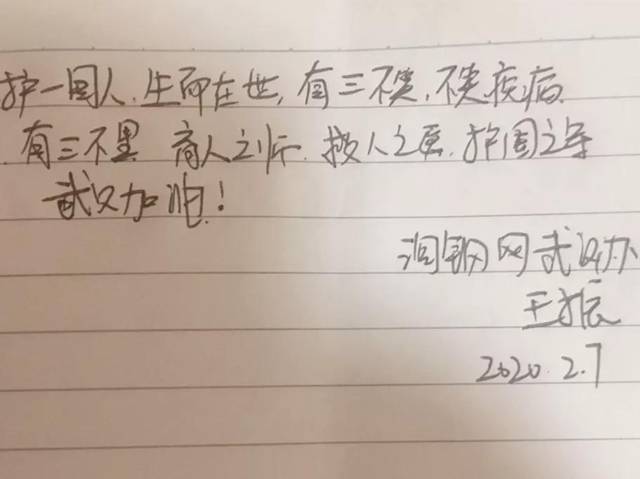 护一国人.生而在世,有三不笑.不笑疾病.
有三不黑 育人之师.救人之医.护国之军
武汉加油!
钢网武汉办
王振
2020.2.7